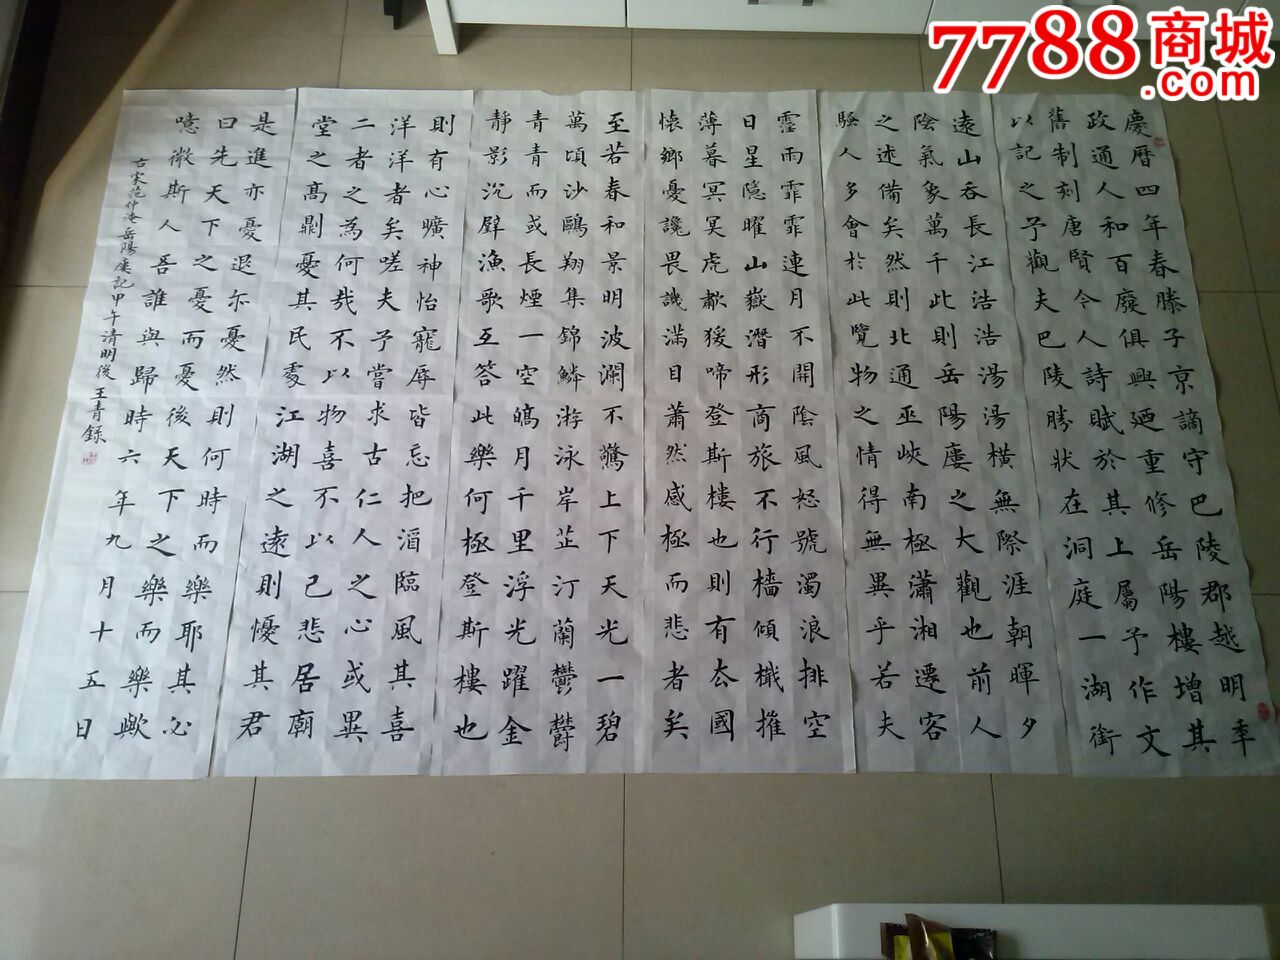 7788商城
.com
慶曆四年春滕子京謫守巴陵郡越明秊
政通人和百廢俱興廼重修岳陽樓增其
舊制刻唐賢今人詩賦於其上屬予作文
以記之予觀夫巴陵勝狀在洞庭一湖銜
遠山吞長江浩浩湯湯橫無際涯朝暉夕
陰氣象萬千此則岳陽樓之大觀也前人
之述備矣然則北通巫峽南極瀟湘遷客
騷人多會於此覽物之情得無異乎若夫
霪雨霏霏連月不開陰風怒號濁浪排空
日星隱曜山嶽潛形商旅不行檣傾檝摧
薄暮冥冥虎嘯猨啼登斯樓也則有去國
懷鄉憂讒畏譏滿目蕭然感極而悲者矣
至若春和景明波瀾不驚上下天光一碧
萬頃沙鷗翔集錦鱗游泳岸芷汀蘭鬱鬱
青青而或長煙一空皜月千里浮光躍金
靜影沉璧漁歌互答此樂何極登斯樓也
則有心曠神怡寵辱皆忘把酒臨風其喜
洋洋者矣嗟夫予嘗求古仁人之心或異
二者之為何哉不以物喜不以己悲居廟
堂之高則憂其民處江湖之遠則憂其君
是進亦憂退亦憂然則何時而樂耶其必
曰先天下之憂而憂後天下之樂而樂歟
噫微斯人吾誰與歸時六年九月十五日
古宋范仲淹岳陽樓記甲午清明後王青錄